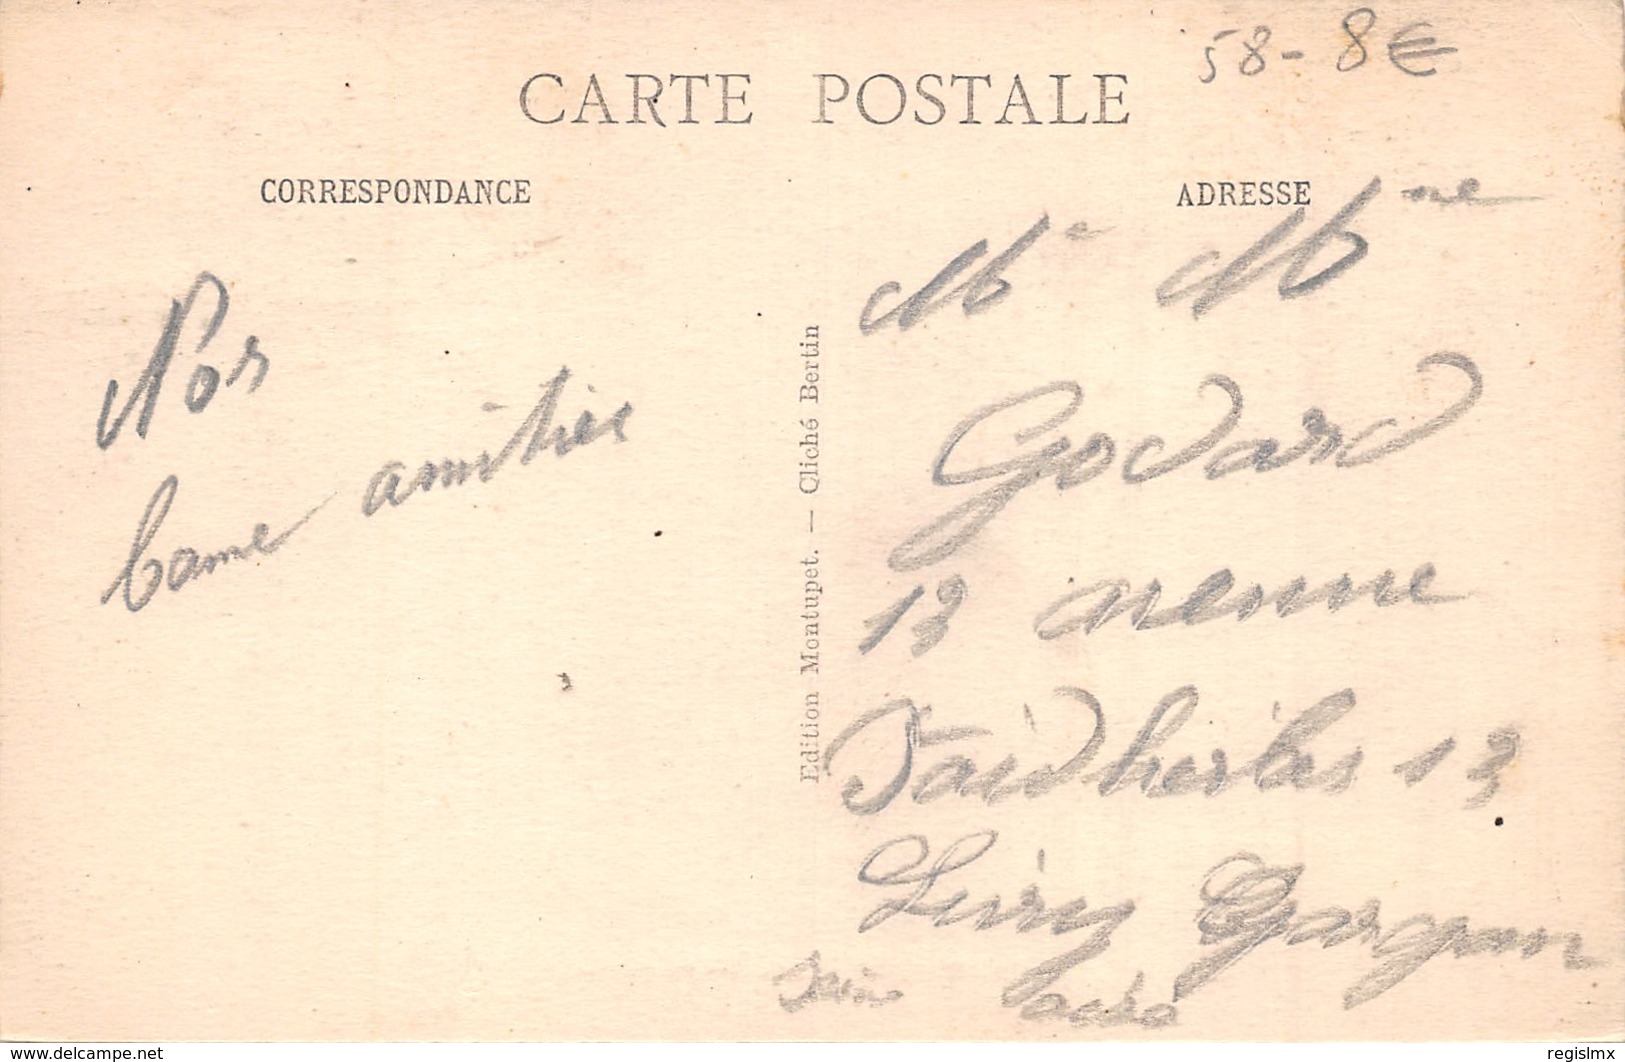 58 - 8€
CARTE POSTALE
CORRESPONDANCE
ADRESSE
Nos
bonne amitiés
Edition Montupet. — Cliché Bertin
Mr Mme
Godard
13 avenue
Faidherbes 13
Livry Gargan
https://www.delcampe.net
regislmx